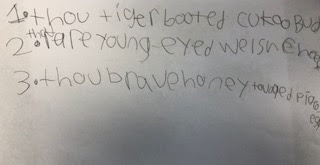 1. thou tigerbooted cukooBud
2. thou rare young-eyed welsh chee
3. thou brave honey tounged pige
eg